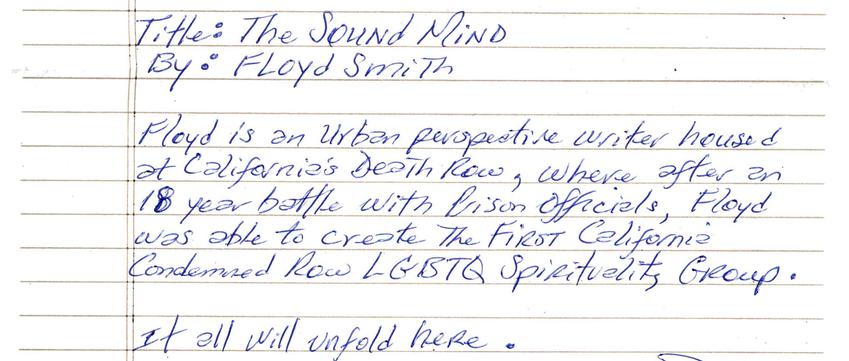 Title: The Sound Mind
By: Floyd Smith
Floyd is an Urban perspective writer housed
at California's Death Row, where after an
18 year battle with Prison Officials, Floyd
was able to create The First California
Condemned Row LGBTQ Spirituality Group.
It all will unfold here.